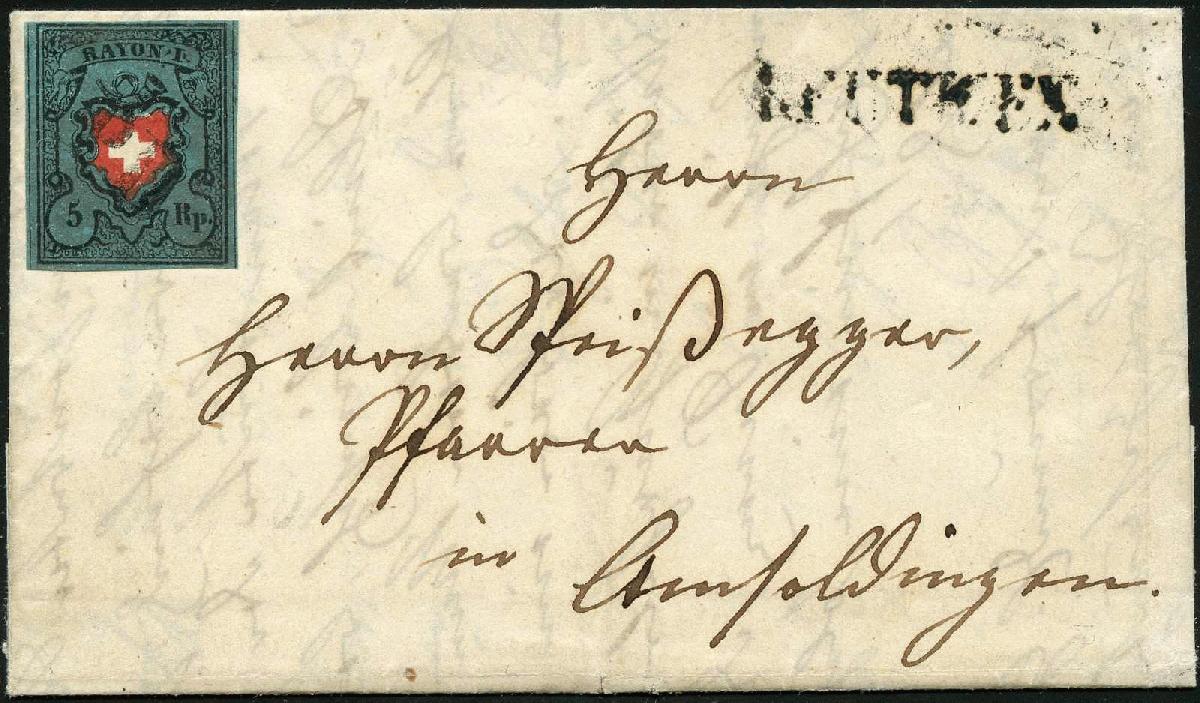 RAYON. I.
5 Rp.
Herrn
Herrn Speißegger,
Pfarrer
in
Amsoldingen.